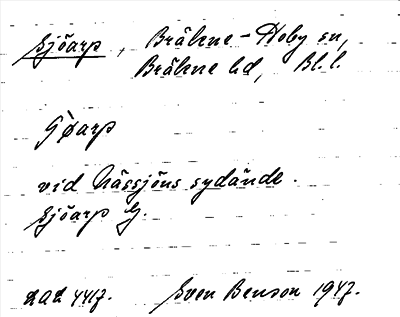 Sjöarp, Bräkne-Hoby sn,
Bräkne hd, Bl. l.
vid Nässjöns sydände.
Sjöarp G.
LAL 4417. Sven Benson 1947.